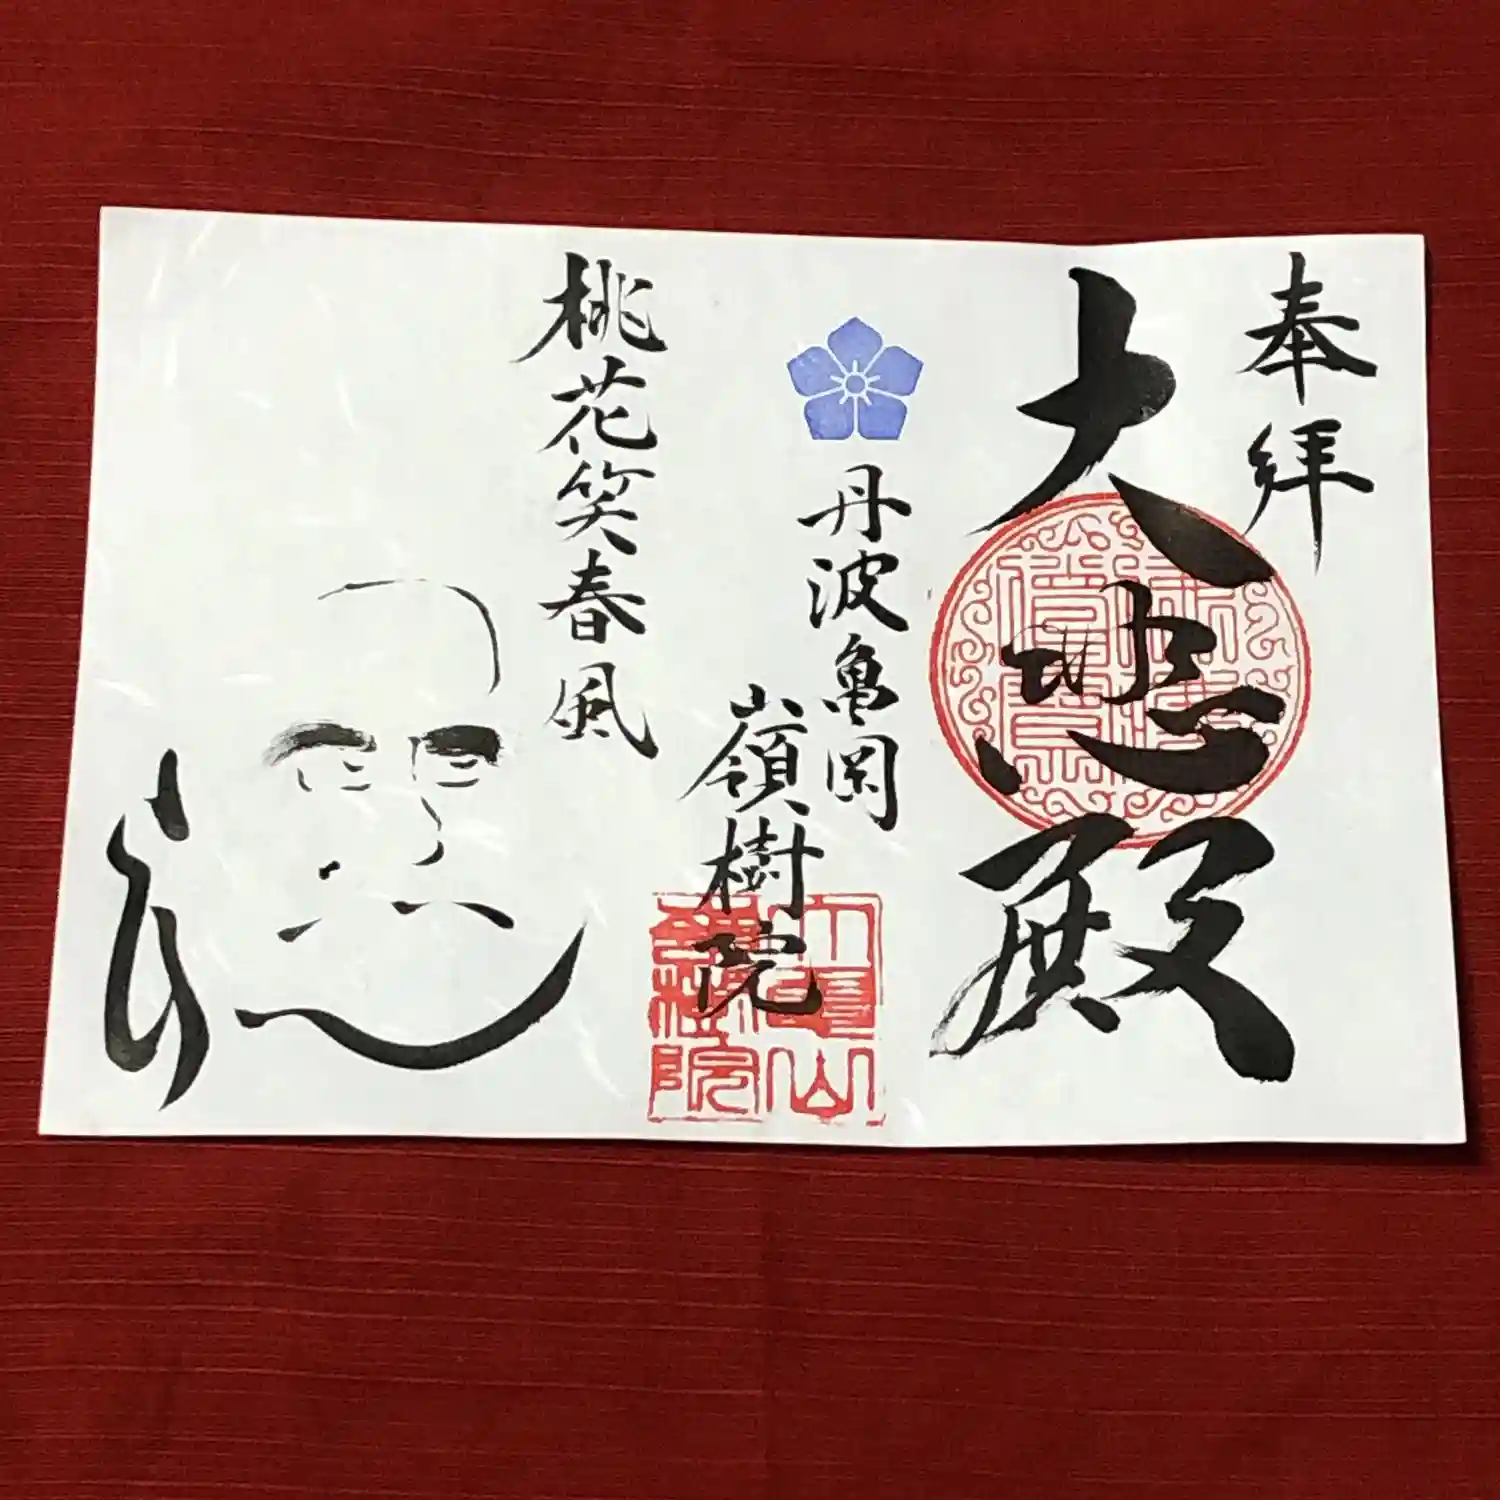 奉拝
大悲殿
丹波亀岡
嶺樹院
桃花笑春風